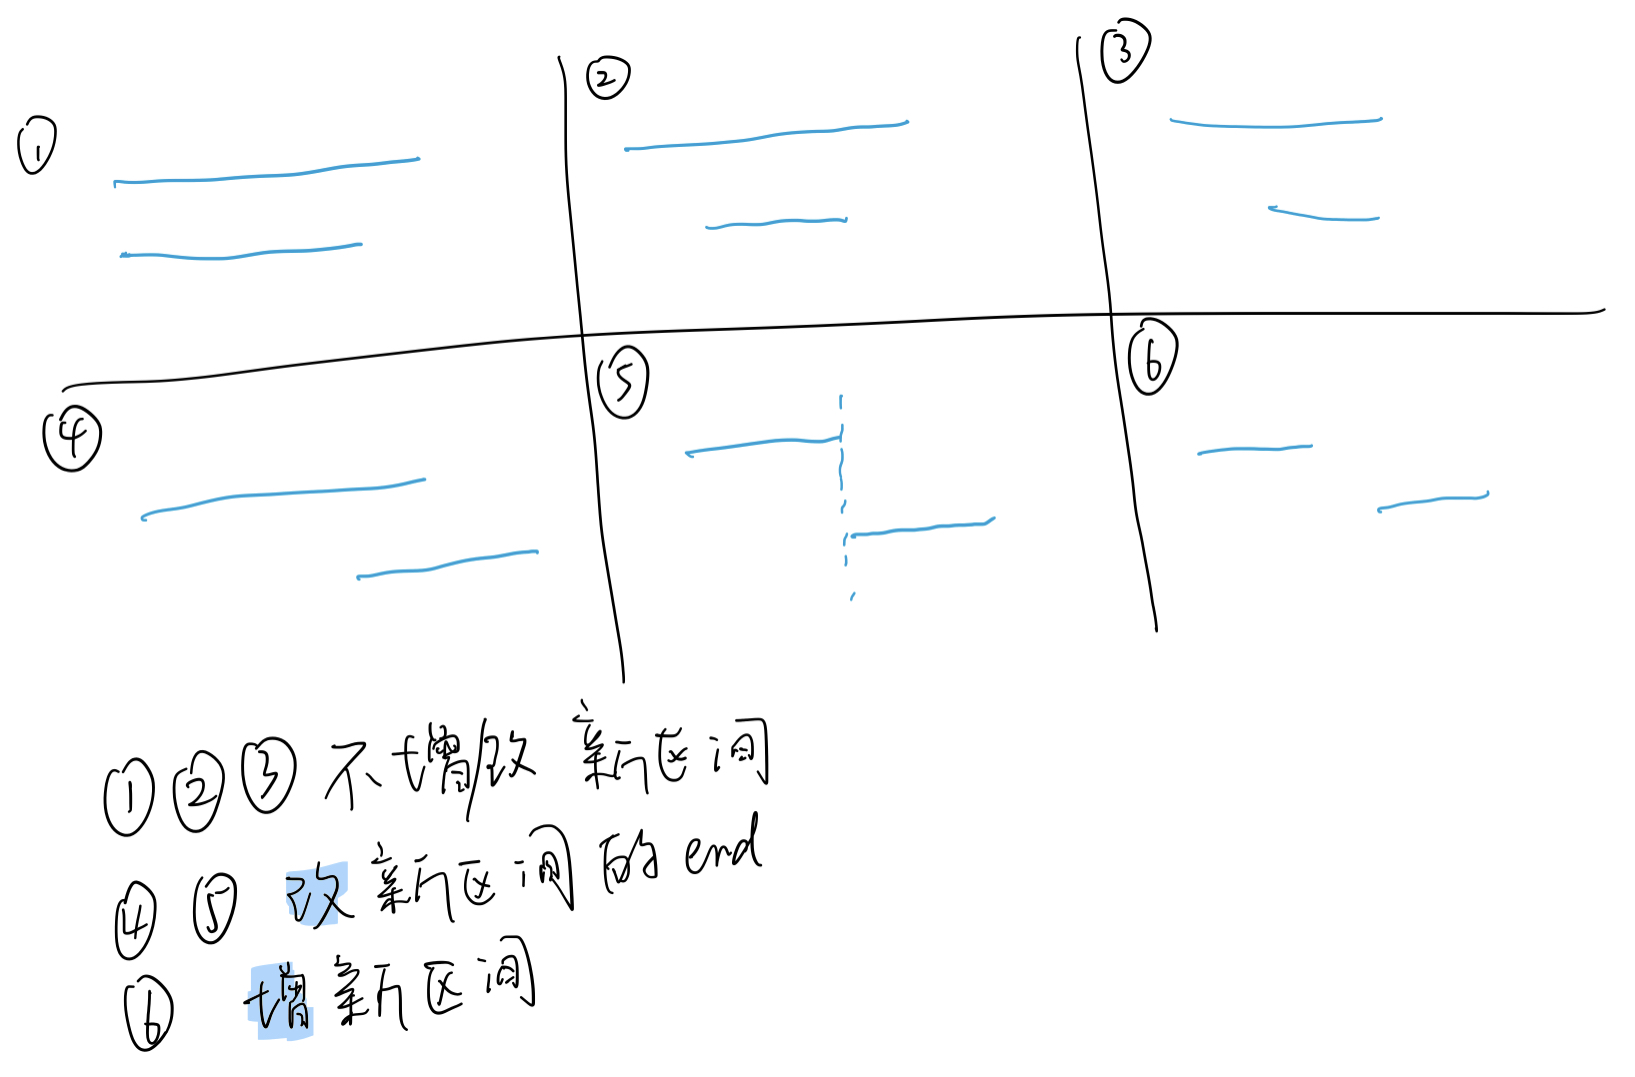 ①
②
③
④
⑤
⑥
①②③不增/改 新区间
④⑤ 改新区间的end
⑥ 增新区间